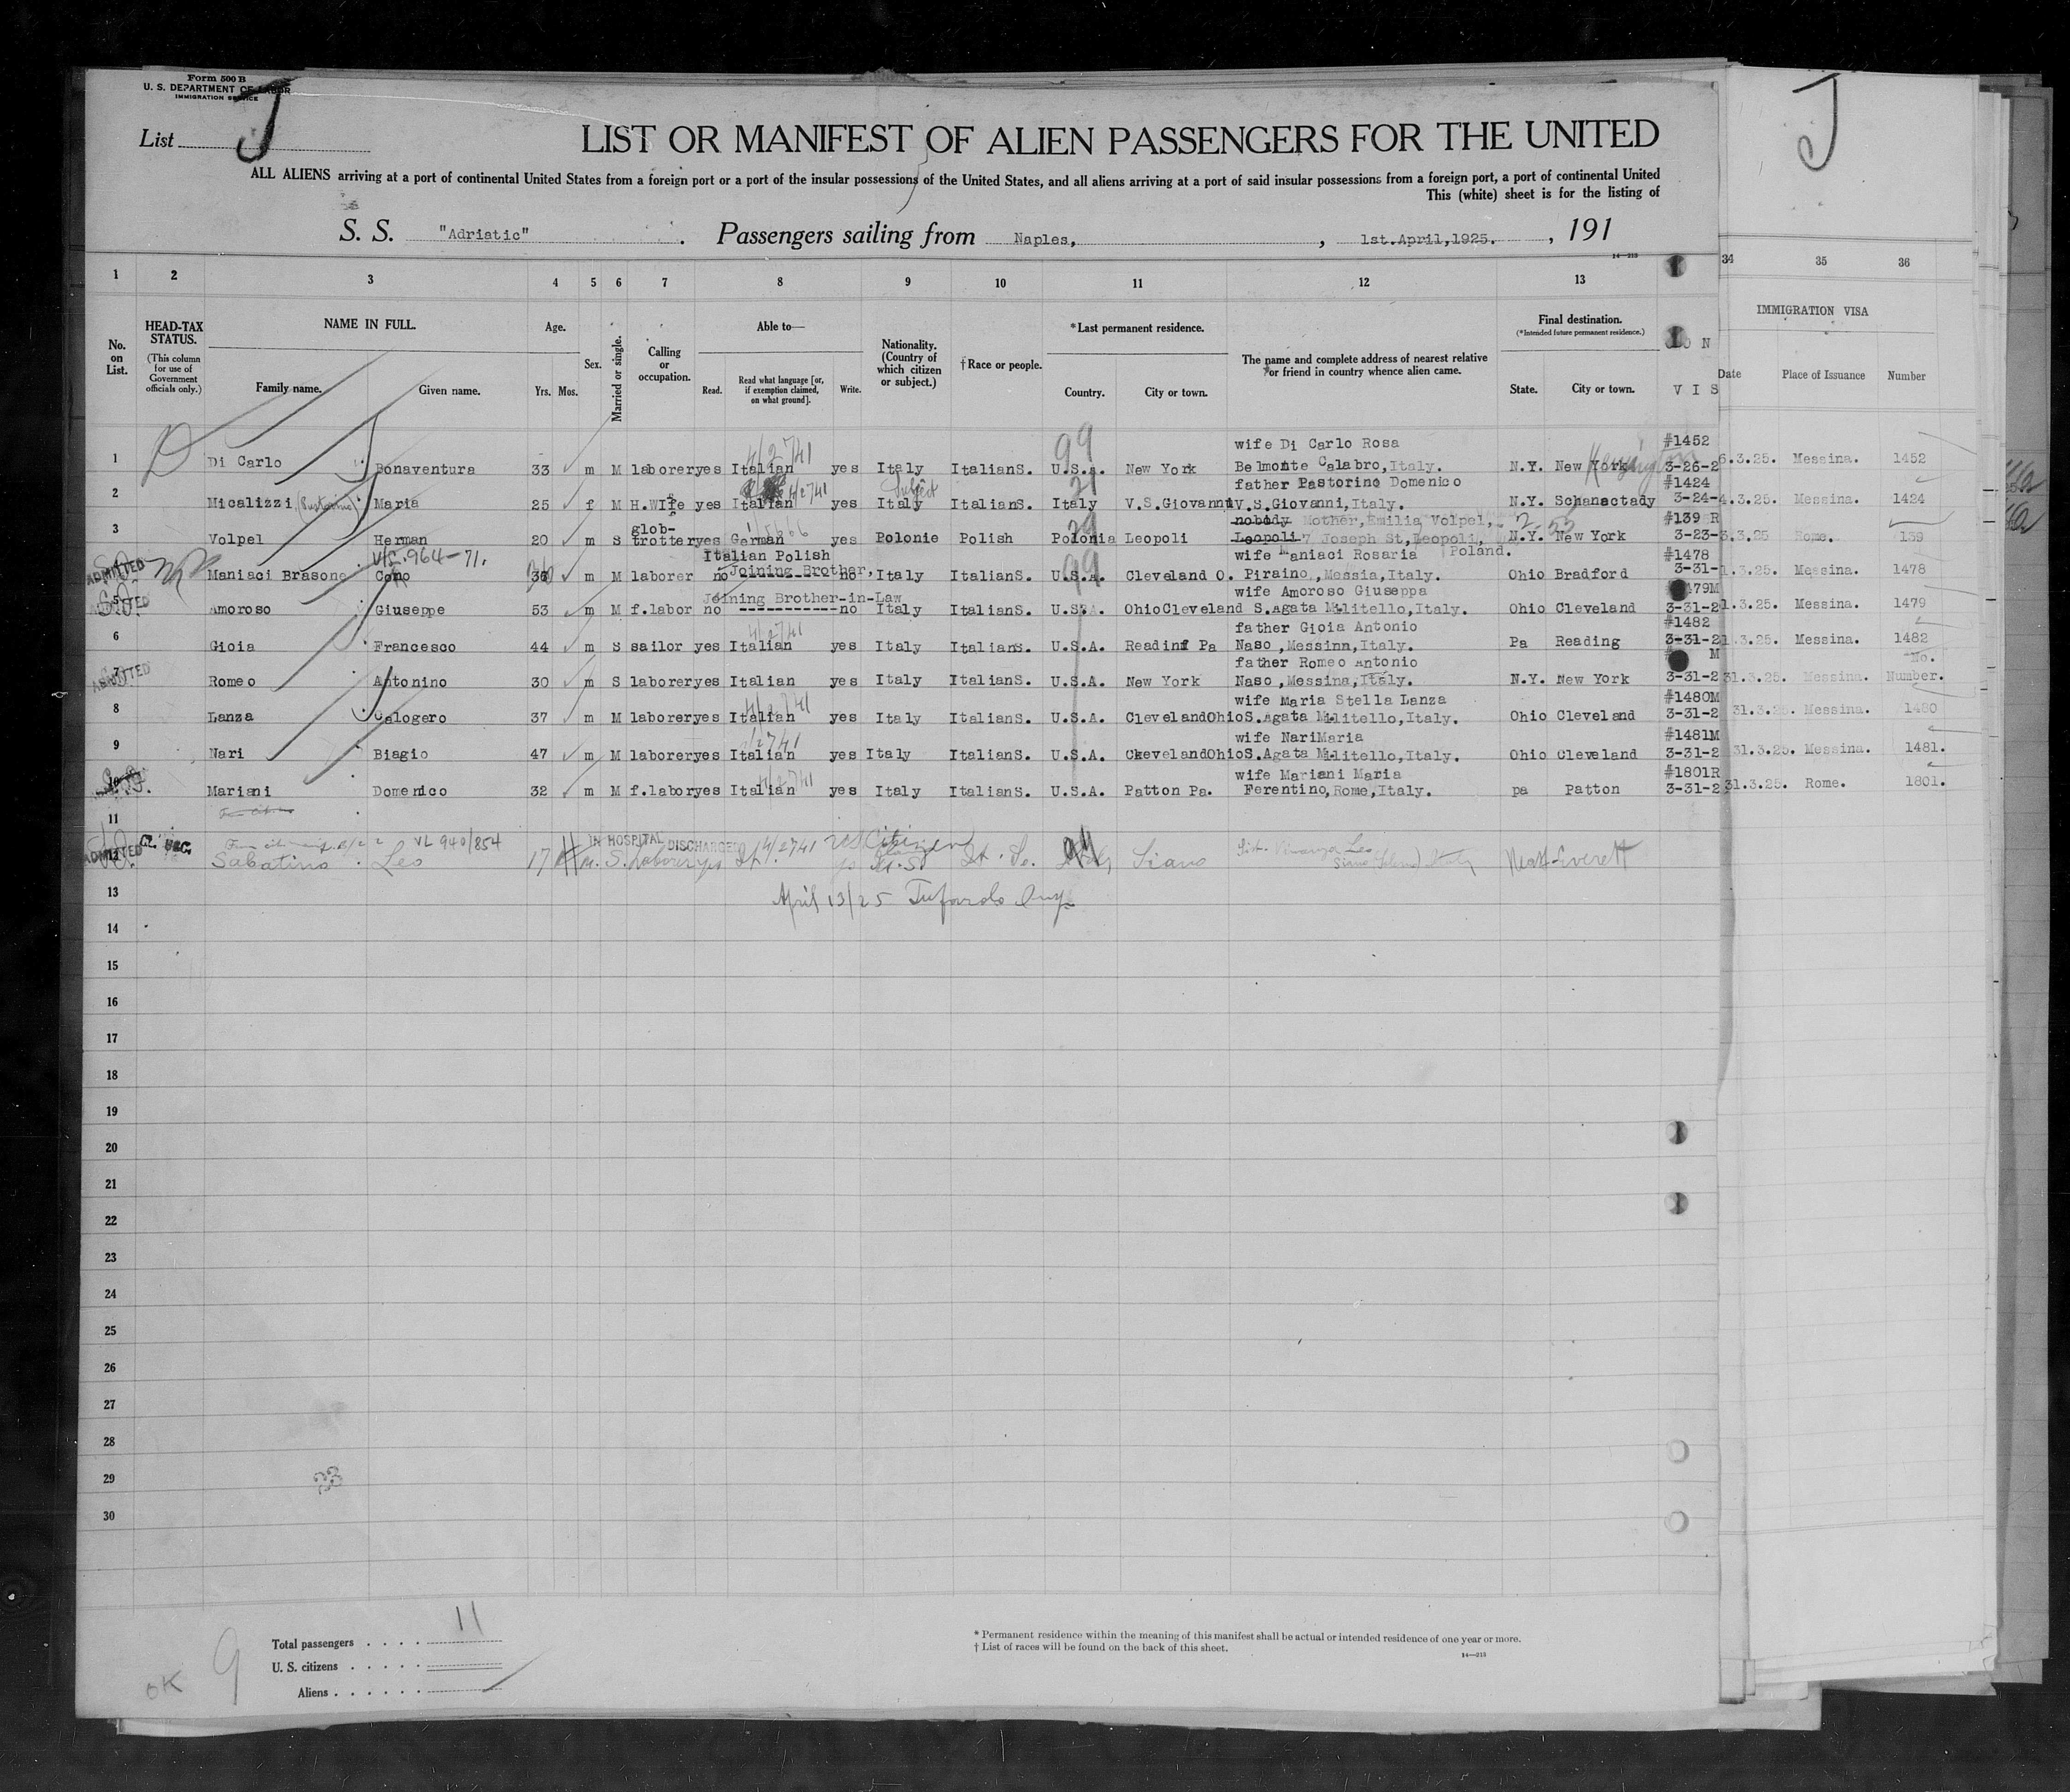 Form 500 B
U. S. DEPARTMENT OF LABOR
IMMIGRATION SERVICE
List J
J
LIST OR MANIFEST OF ALIEN PASSENGERS FOR THE UNITED
ALL ALIENS arriving at a port of continental United States from a foreign port or a port of the insular possessions of the United States, and all aliens arriving at a port of said insular possessions from a foreign port, a port of continental United
This (white) sheet is for the listing of
S. S. "Adriatic" . Passengers sailing from Naples, , 1st.April,1925. , 191
14—213
1 2 3 4 5 6 7 8 9 10 11 12 13 34 35 36
No. on List.
HEAD-TAX STATUS.
(This column for use of Government officials only.)
NAME IN FULL.
Family name. Given name.
Age.
Yrs. Mos.
Sex.
Married or single.
Calling or occupation.
Able to—
Read. Read what language [or, if exemption claimed, on what ground]. Write.
Nationality. (Country of which citizen or subject.)
†Race or people.
*Last permanent residence.
Country. City or town.
The name and complete address of nearest relative or friend in country whence alien came.
Final destination.
(*Intended future permanent residence.)
State. City or town.
V I S
IMMIGRATION VISA
Date Place of Issuance Number
4/2741 99 wife Di Carlo Rosa #1452
1 Di Carlo Bonaventura 33 m M laborer yes Italian yes Italy ItalianS. U.S.A. New York Belmonte Calabro,Italy. N.Y. New York 3-26-2 6.3.25. Messina. 1452
4/2741 Subject 21 father Pastorino Domenico #1424
2 Micalizzi Maria 25 f M H.Wife yes Italian yes Italy ItalianS. Italy V.S.Giovanni V.S.Giovanni,Italy. N.Y. Schanactady 3-24- 4.3.25. Messina. 1424
glob- nobody Mother,Emilia Volpel, #139 R
3 Volpel Herman 20 m S trotter yes German yes Polonie Polish Polonia Leopoli Leopoli 7 Joseph St,Leopoli, Poland. N.Y. New York 3-23- 3.3.25 Rome. 139
V/L.964-71. Italian Polish
Joining Brother, 99 wife Maniaci Rosaria #1478
ADMITTED Maniaci Brasone Cono m M laborer no no Italy ItalianS. U.S.A. Cleveland O. Piraino,Messia,Italy. Ohio Bradford 3-31- 1.3.25. Messina. 1478
Joining Brother-in-Law wife Amoroso Giuseppa 479M
5 Amoroso Giuseppe 53 m M f.labor no ----------- no Italy ItalianS. U.S.A. Ohio Cleveland S.Agata Militello,Italy. Ohio Cleveland 3-31-2 1.3.25. Messina. 1479
4/2741 father Gioia Antonio #1482
6 Gioia Francesco 44 m S sailor yes Italian yes Italy ItalianS. U.S.A. Readinf Pa Naso,Messinn,Italy. Pa Reading 3-31-2 1.3.25. Messina. 1482
father Romeo Antonio M No.
ADMITTED 7 Romeo Antonino 30 m S laborer yes Italian yes Italy ItalianS. U.S.A. New York Naso,Messina,Italy. N.Y. New York 3-31-2 31.3.25. Messina. Number.
4/2741 wife Maria Stella Lanza #1480M
8 Lanza Calogero 37 m M laborer yes Italian yes Italy ItalianS. U.S.A. ClevelandOhio S.Agata Militello,Italy. Ohio Cleveland 3-31-2 31.3.25. Messina. 1480
4/2741 wife NariMaria #1481M
9 Nari Biagio 47 m M laborer yes Italian yes Italy ItalianS. U.S.A. CkevelandOhio S.Agata Militello,Italy. Ohio Cleveland 3-31-2 31.3.25. Messina. 1481.
4/2741 wife Mariani Maria #1801R
10 Mariani Domenico 32 m M f.labor yes Italian yes Italy ItalianS. U.S.A. Patton Pa. Ferentino,Rome,Italy. pa Patton 3-31-2 31.3.25. Rome. 1801.
11
VL 940/854 IN HOSPITAL DISCHARGED 4/2741 US Citizen
ADMITTED 12 Sabatino Leo 17 m. S. laborer yes It. It. So. Siano Mass Everett
13
April 13/25
14
15
16
17
18
19
20
21
22
23
24
25
26
27
28
29
30
33
Total passengers . . . . 11
U. S. citizens . . . . .
Aliens . . . . . .
OK 9
* Permanent residence within the meaning of this manifest shall be actual or intended residence of one year or more.
† List of races will be found on the back of this sheet.
14—213